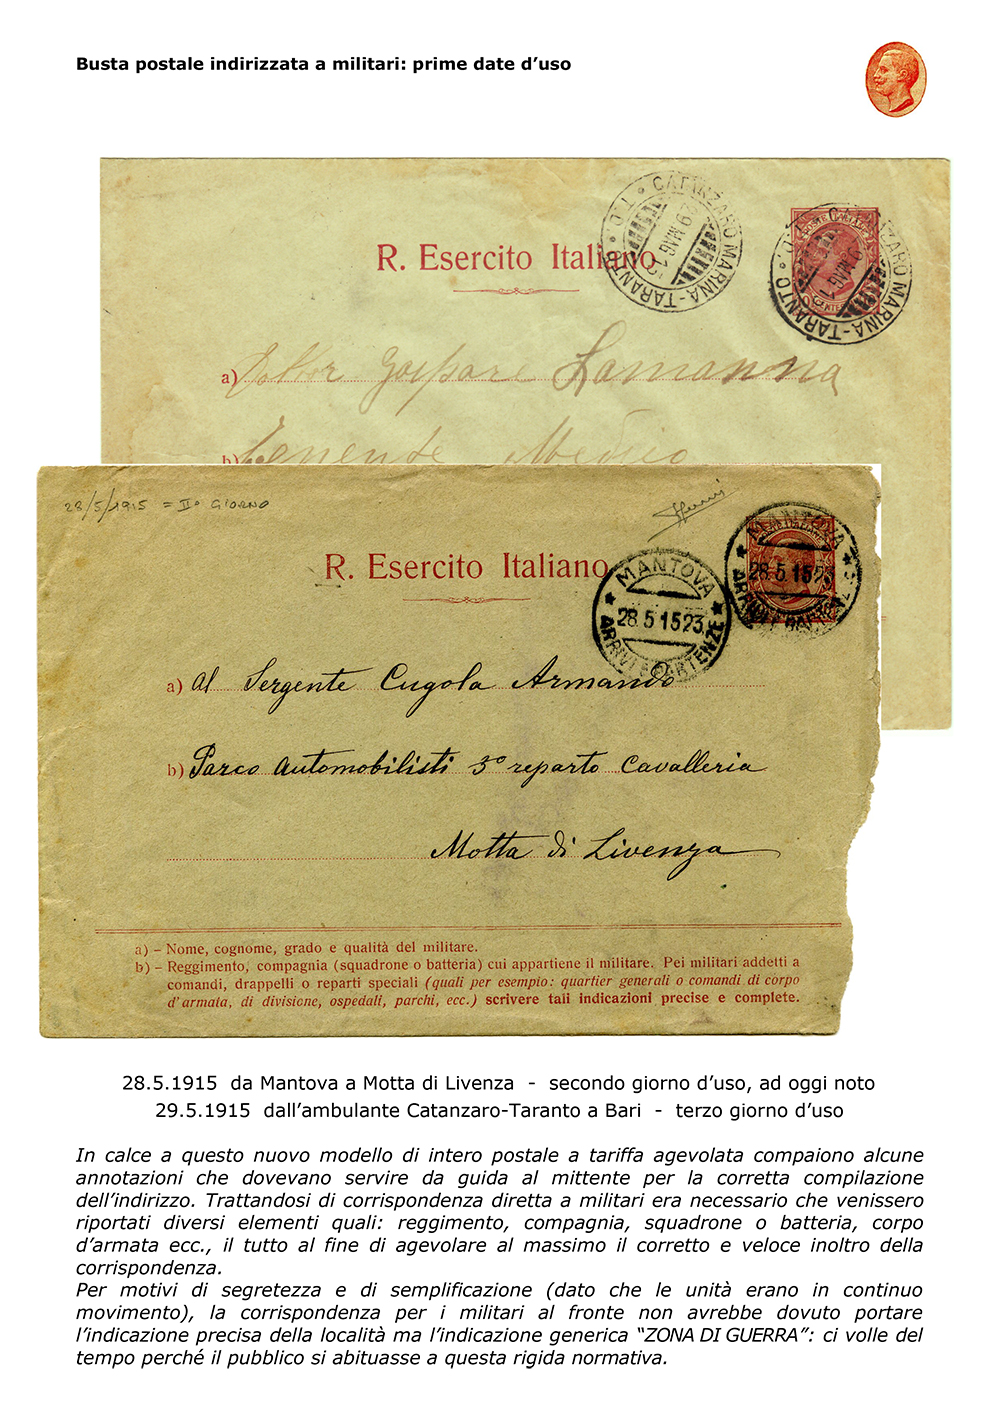 Busta postale indirizzata a militari: prime date d’uso
CATANZARO MARINA-TARANTO
29 MAG 15
CATANZARO MARINA-TARANTO
R. Esercito Italiano
a) Dottor Gaspare Lamanna
b) Tenente Medico
28/5/1915 = II° GIORNO
MANTOVA
28.5 15 23
ARRIVI E PARTENZE
MANTOVA
28.5 15 23
R. Esercito Italiano
a) Al Sergente Cugola Armando
b) Parco Automobilisti 3° reparto Cavalleria
Motta di Livenza
a) – Nome, cognome, grado e qualità del militare.
b) – Reggimento, compagnia (squadrone o batteria) cui appartiene il militare. Pei militari addetti a
comandi, drappelli o reparti speciali (quali per esempio: quartier generali o comandi di corpo
d’armata, di divisione, ospedali, parchi, ecc.) scrivere tali indicazioni precise e complete.
28.5.1915 da Mantova a Motta di Livenza - secondo giorno d’uso, ad oggi noto
29.5.1915 dall’ambulante Catanzaro-Taranto a Bari - terzo giorno d’uso
In calce a questo nuovo modello di intero postale a tariffa agevolata compaiono alcune
annotazioni che dovevano servire da guida al mittente per la corretta compilazione
dell’indirizzo. Trattandosi di corrispondenza diretta a militari era necessario che venissero
riportati diversi elementi quali: reggimento, compagnia, squadrone o batteria, corpo
d’armata ecc., il tutto al fine di agevolare al massimo il corretto e veloce inoltro della
corrispondenza.
Per motivi di segretezza e di semplificazione (dato che le unità erano in continuo
movimento), la corrispondenza per i militari al fronte non avrebbe dovuto portare
l’indicazione precisa della località ma l’indicazione generica “ZONA DI GUERRA”: ci volle del
tempo perché il pubblico si abituasse a questa rigida normativa.